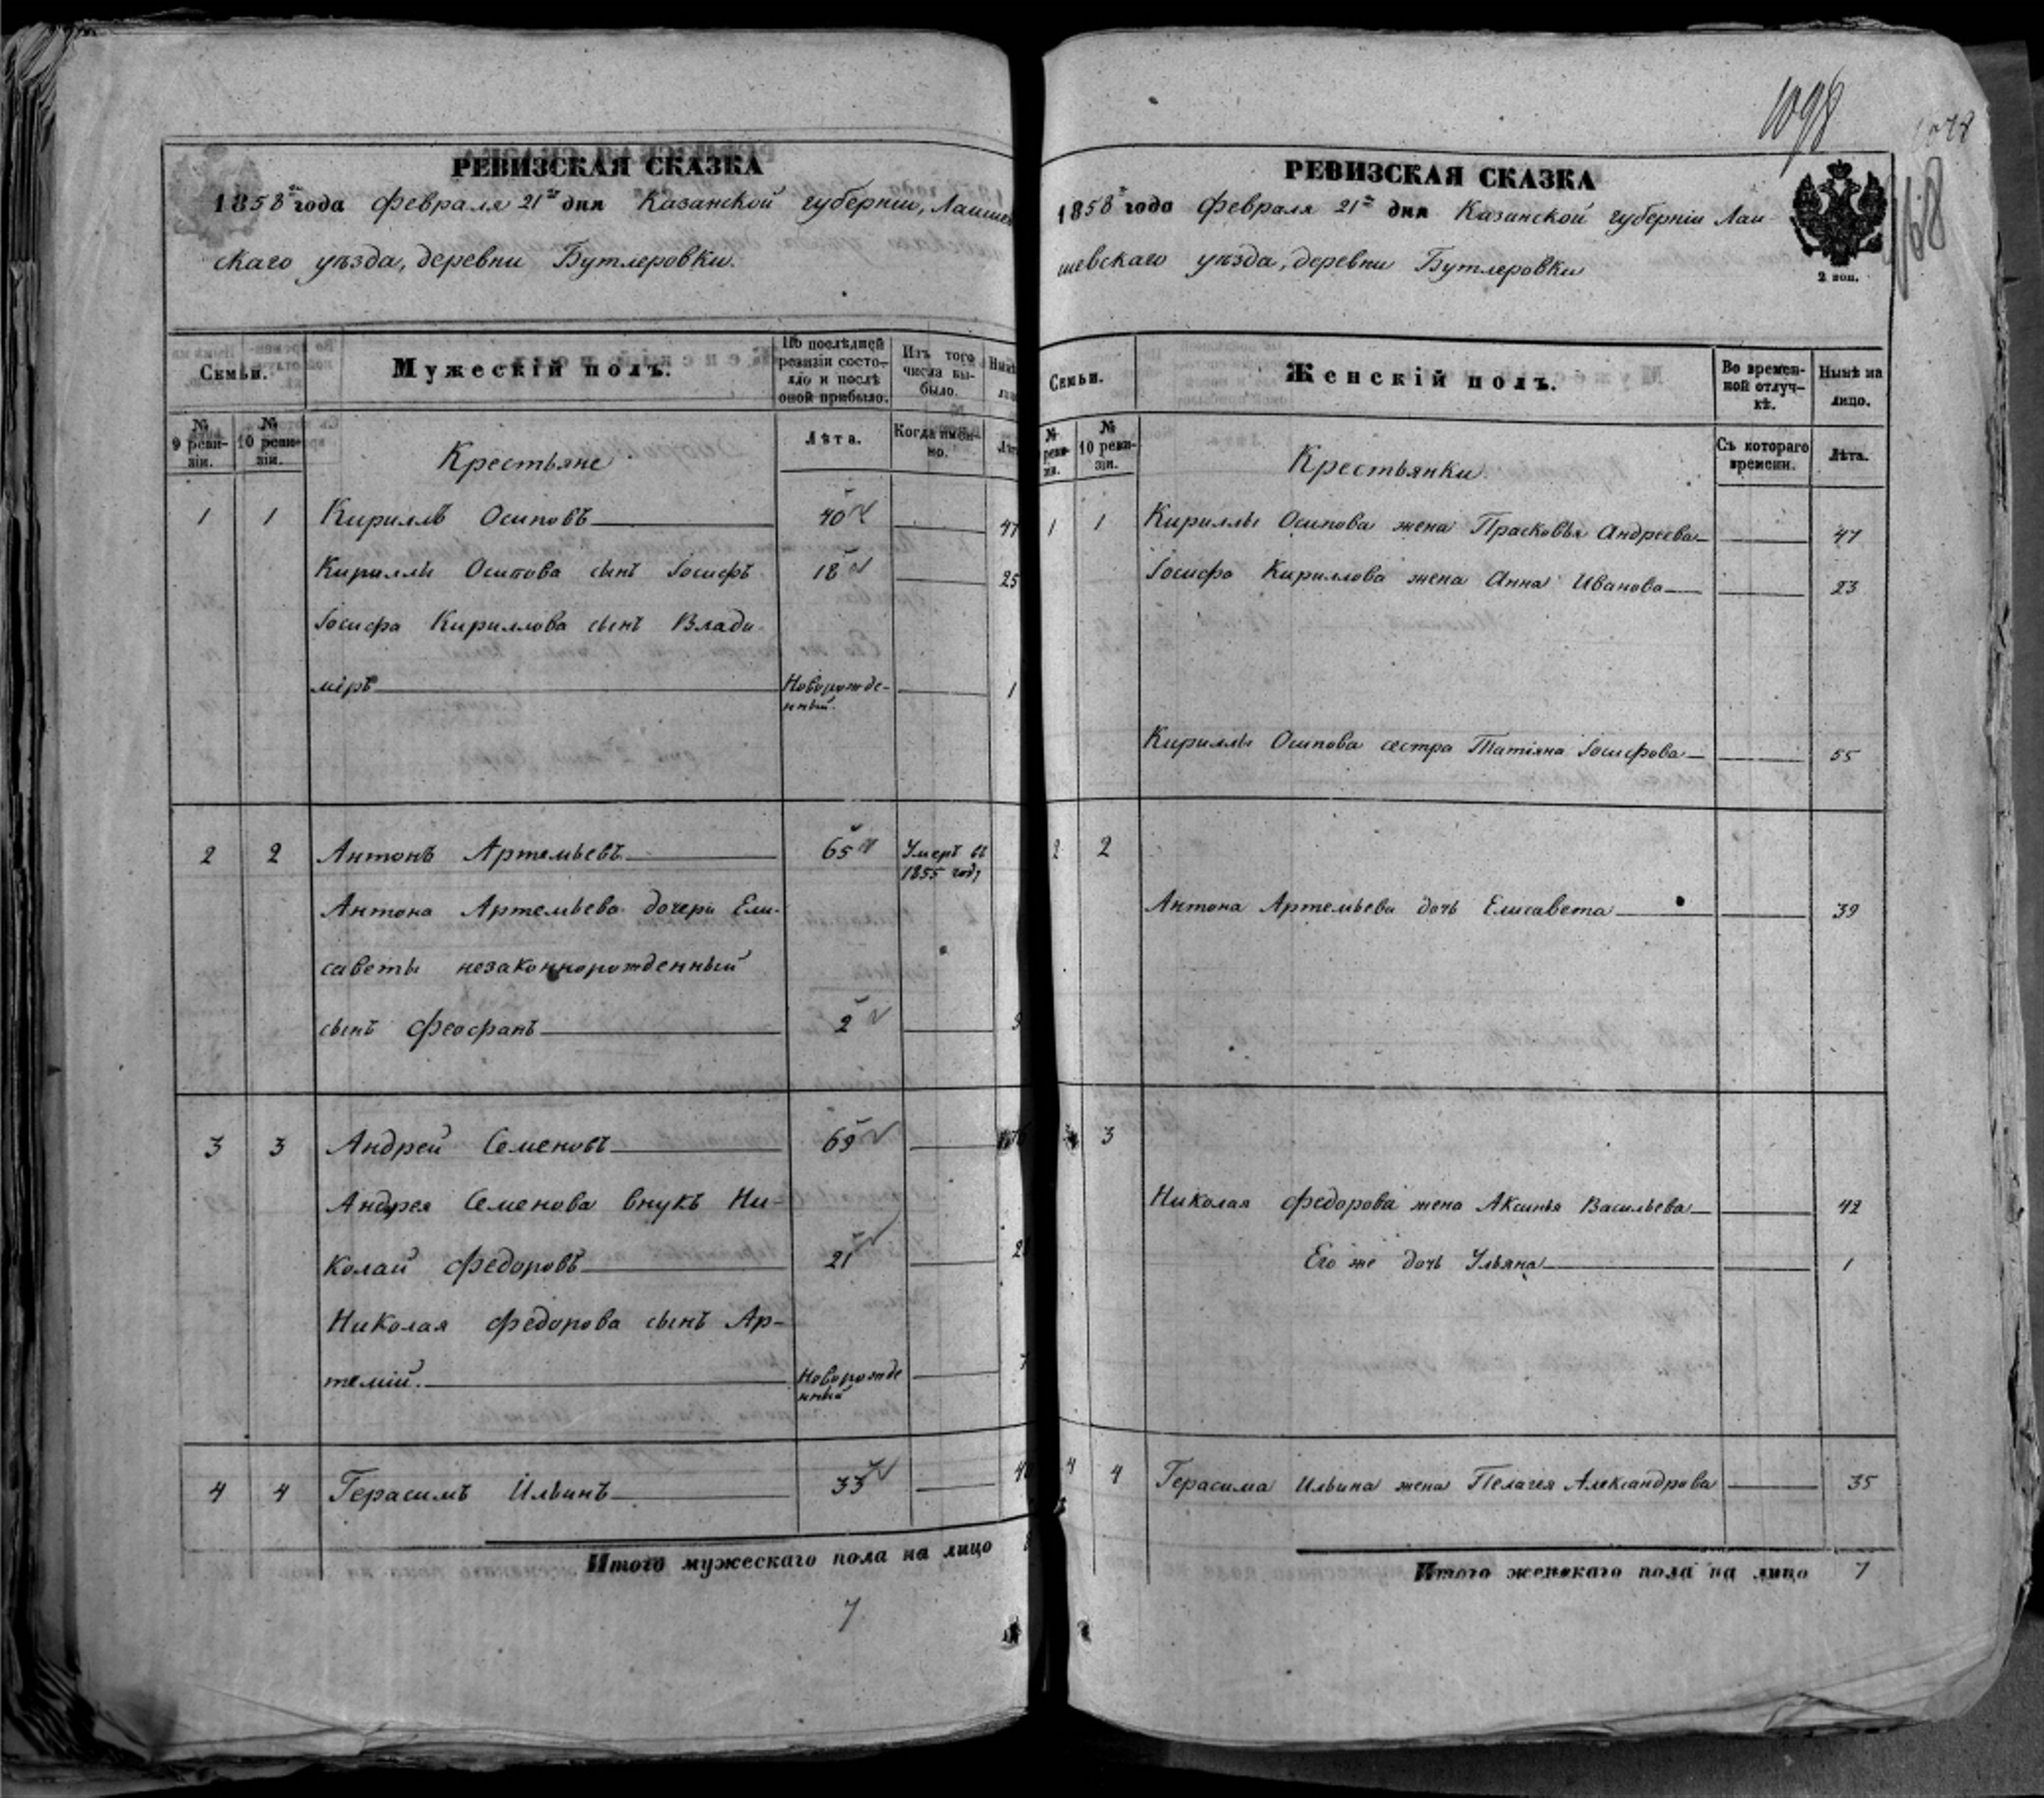 1098
РЕВИЗСКАЯ СКАЗКА
1858го года февраля 21го дня Казанской губерніи, Лаишев
скаго уѣзда, деревни Бутлеровки.
Семьи.
Мужескій полъ.
По послѣдней ревизіи состояло и послѣ оной прибыло.
Изъ того числа выбыло.
№ 9 ревизіи.
№ 10 ревизіи.
Лѣта.
Когда именно.
Крестьяне
1 1 Кириллъ Осиповъ 40 47
Кириллы Осипова сынъ Іосифъ 18 25
Іосифа Кириллова сынъ Влади-
міръ Новорожде- 1
нный.
2 2 Антонъ Артемьевъ 65 Умеръ въ
1855 году
Антона Артемьева дочери Ели-
саветы незаконнорожденный
сынъ Феофанъ 2 9
3 3 Андрей Семеновъ 69
Андрея Семенова внукъ Ни-
колай Федоровъ 21
Николая Федорова сынъ Ар-
темій. Новорожде
нный
4 4 Герасимъ Ильинъ 33
Итого мужескаго пола на лицо
7
РЕВИЗСКАЯ СКАЗКА
1858го года Февраля 21го дня Казанской губерніи Лаи-
шевскаго уѣзда, деревни Бутлеровки
2 коп.
168
Семьи.
Женскій полъ.
Во временной отлучкѣ.
Нынѣ на лицо.
№ 10 ревизіи.
Съ котораго времени.
Лѣта.
Крестьянки
1 1 Кириллы Осипова жена Прасковья Андреева 47
Іосифа Кириллова жена Анна Иванова 23
Кириллы Осипова сестра Татіяна Іосифова 55
2 2
Антона Артемьева дочь Елисавета 39
3
Николая Федорова жена Аксинья Васильева 42
Его же дочь Ульяна 1
4 4 Герасима Ильина жена Пелагея Александрова 35
Итого женскаго пола на лицо 7